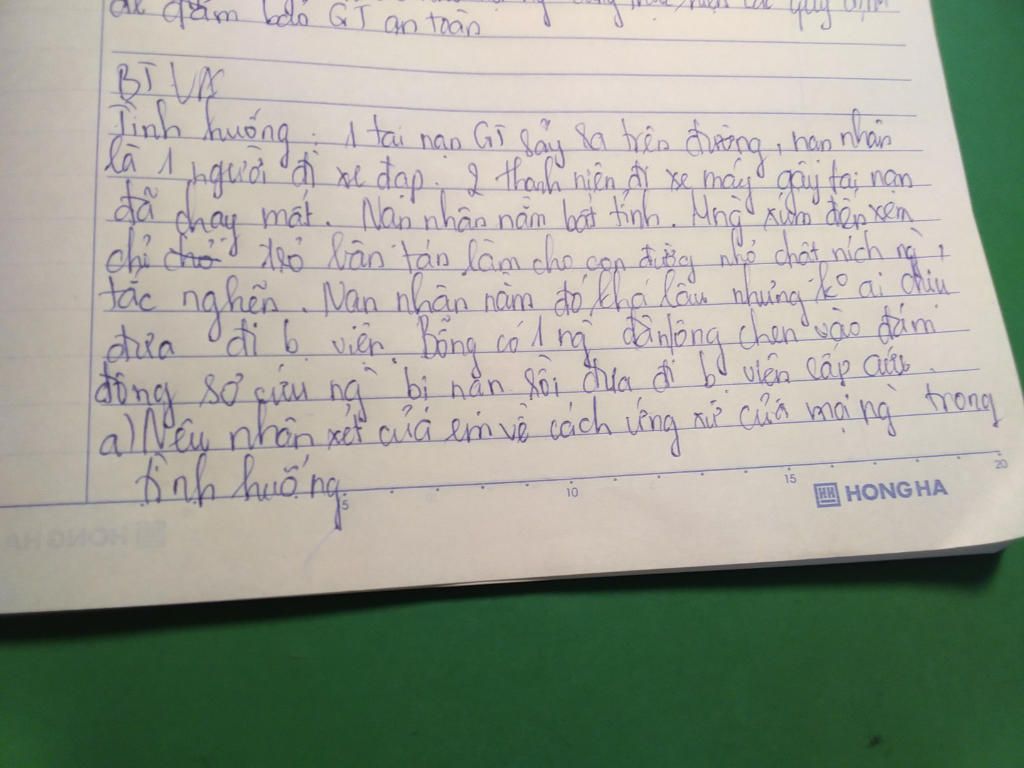 để đảm bảo GT an toàn
BT VN
Tình huống : 1 tai nạn GT sảy ra trên đường, nạn nhân
là 1 người đi xe đạp. 2 thanh niên đi xe máy gây tai nạn
đã chạy mất. Nạn nhân nằm bất tỉnh. Mng xúm đến xem
chỉ chỏ trỏ bàn tán làm cho con đường nhỏ chật ních ng,
tắc nghẽn. Nạn nhân nằm đó khá lâu nhưng ko ai chịu
đưa đi b viện. Bỗng có 1 ng đàn ông chen vào đám
đông sơ cứu ng bị nạn rồi đưa đi b viện cấp cứu.
a) Nêu nhận xét của em về cách ứng xử của mọi ng trong
tình huống
5 10 15 20
HH HONG HA